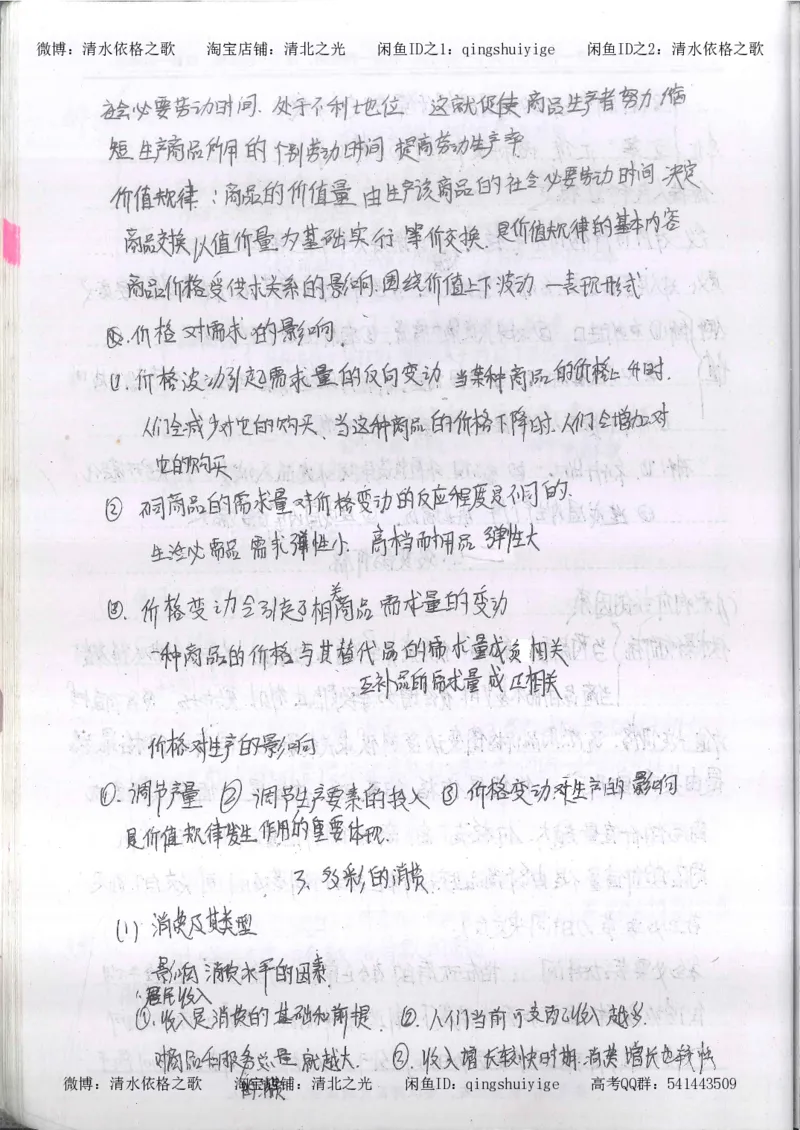 微博：清水依格之歌 淘宝店铺：清北之光 闲鱼ID之1：qingshuiyige 闲鱼ID之2：清水依格之歌
社会必要劳动时间．处于不利地位 这就促使商品生产者努力缩
短生产商品所用的个别劳动时间 提高劳动生产率
价值规律：商品的价值量 由生产该商品的社会必要劳动时间决定
商品交换以值价量为基础实行等价交换．是价值规律的基本内容
商品价格受供求关系的影响．围绕价值上下波动 —表现形式
价格对需求的影响．
①．价格波动引起需求量的反向变动 当某种商品的价格上升时．
人们会减少对它的购买、当这种商品的价格下降时．人们会增加对
它的购买
② 不同商品的需求量对价格变动的反应程度是不同的．
生活必需品 需求弹性小． 高档耐用品 弹性大
③．价格变动会引起了相关商品需求量的变动
一种商品的价格与其替代品的需求量成负相关
互补品的需求量成正相关
价格对生产的影响
①．调节产量 ② 调节生产要素的投入 ③ 价格变动对生产的影响
是价值规律发生作用的重要体现．
3．多彩的消费．
(1) 消费及其类型
影响消费水平的因素．
居民收入
①．收入是消费的基础和前提． ②．人们当前可支配收入越多．
对商品和服务总量就越大． ③．收入增长较快时期．消费增长也较快
微博：清水依格之歌 淘宝店铺：清北之光 闲鱼ID：qingshuiyige 高考QQ群：541443509